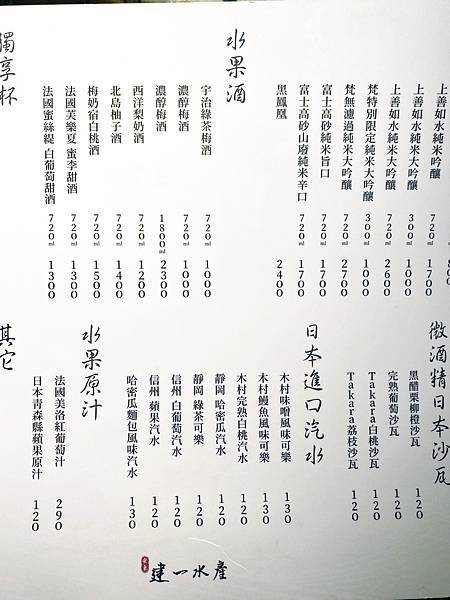 上善如水純米吟釀 720ml 1700
上善如水純米大吟釀 300ml 1000
上善如水純米大吟釀 720ml 2600
梵特別限定純米大吟釀 300ml 1000
梵無濾過純米大吟釀 720ml 2700
富士高砂純米旨口 720ml 1700
富士高砂山廢純米辛口 720ml 1700
黑鳳凰 2400
水果酒
宇治綠茶梅酒 720ml 1000
濃醇梅酒 720ml 1000
濃醇梅酒 1800ml 2300
西洋梨奶酒 720ml 1200
北島柚子酒 720ml 1400
梅奶宿白桃酒 720ml 1500
法國芙樂夏 蜜李甜酒 720ml 1300
法國蜜絲緹 白葡萄甜酒 720ml 1300
獨享杯
微酒精日本沙瓦
黑醋栗柳橙沙瓦 120
完熟葡萄沙瓦 120
Takara白桃沙瓦 120
Takara荔枝沙瓦 120
日本進口汽水
木村味噌風味可樂 130
木村鰻魚風味可樂 130
木村完熟白桃汽水 120
靜岡 哈密瓜汽水 120
靜岡 綠茶可樂 120
信州 白葡萄汽水 120
信州 蘋果汽水 120
哈密瓜麵包風味汽水 130
水果原汁
法國美洛紅葡萄汁 290
日本青森縣蘋果原汁 120
其它
建一水產